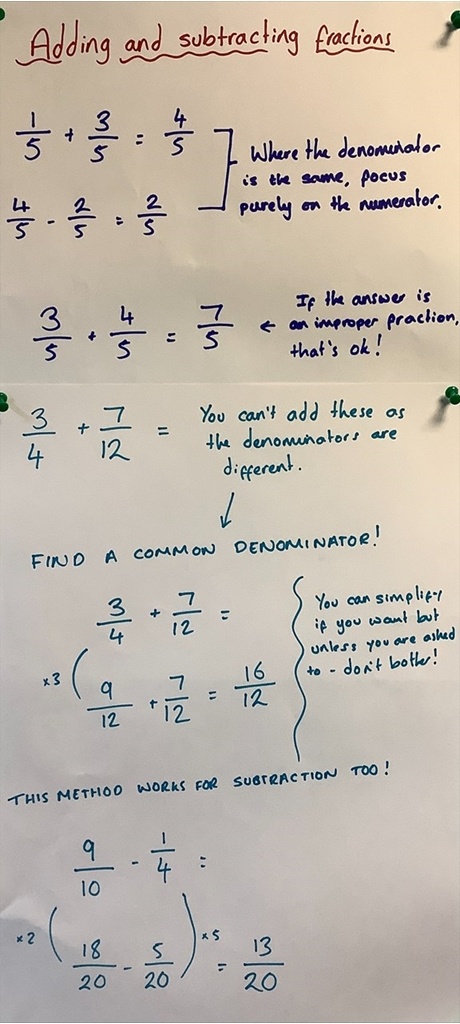 Adding and subtracting fractions
1/5 + 3/5 = 4/5
4/5 - 2/5 = 2/5
Where the denominator
is the same, focus
purely on the numerator.
3/5 + 4/5 = 7/5
← If the answer is
an improper fraction,
that's ok!
3/4 + 7/12 =
You can't add these as
the denominators are
different.
↓
FIND A COMMON DENOMINATOR!
3/4 + 7/12 =
×3
9/12 + 7/12 = 16/12
You can simplify
if you want but
unless you are asked
to - don't bother!
THIS METHOD WORKS FOR SUBTRACTION TOO!
9/10 - 1/4 =
×2 ×5
18/20 - 5/20 = 13/20